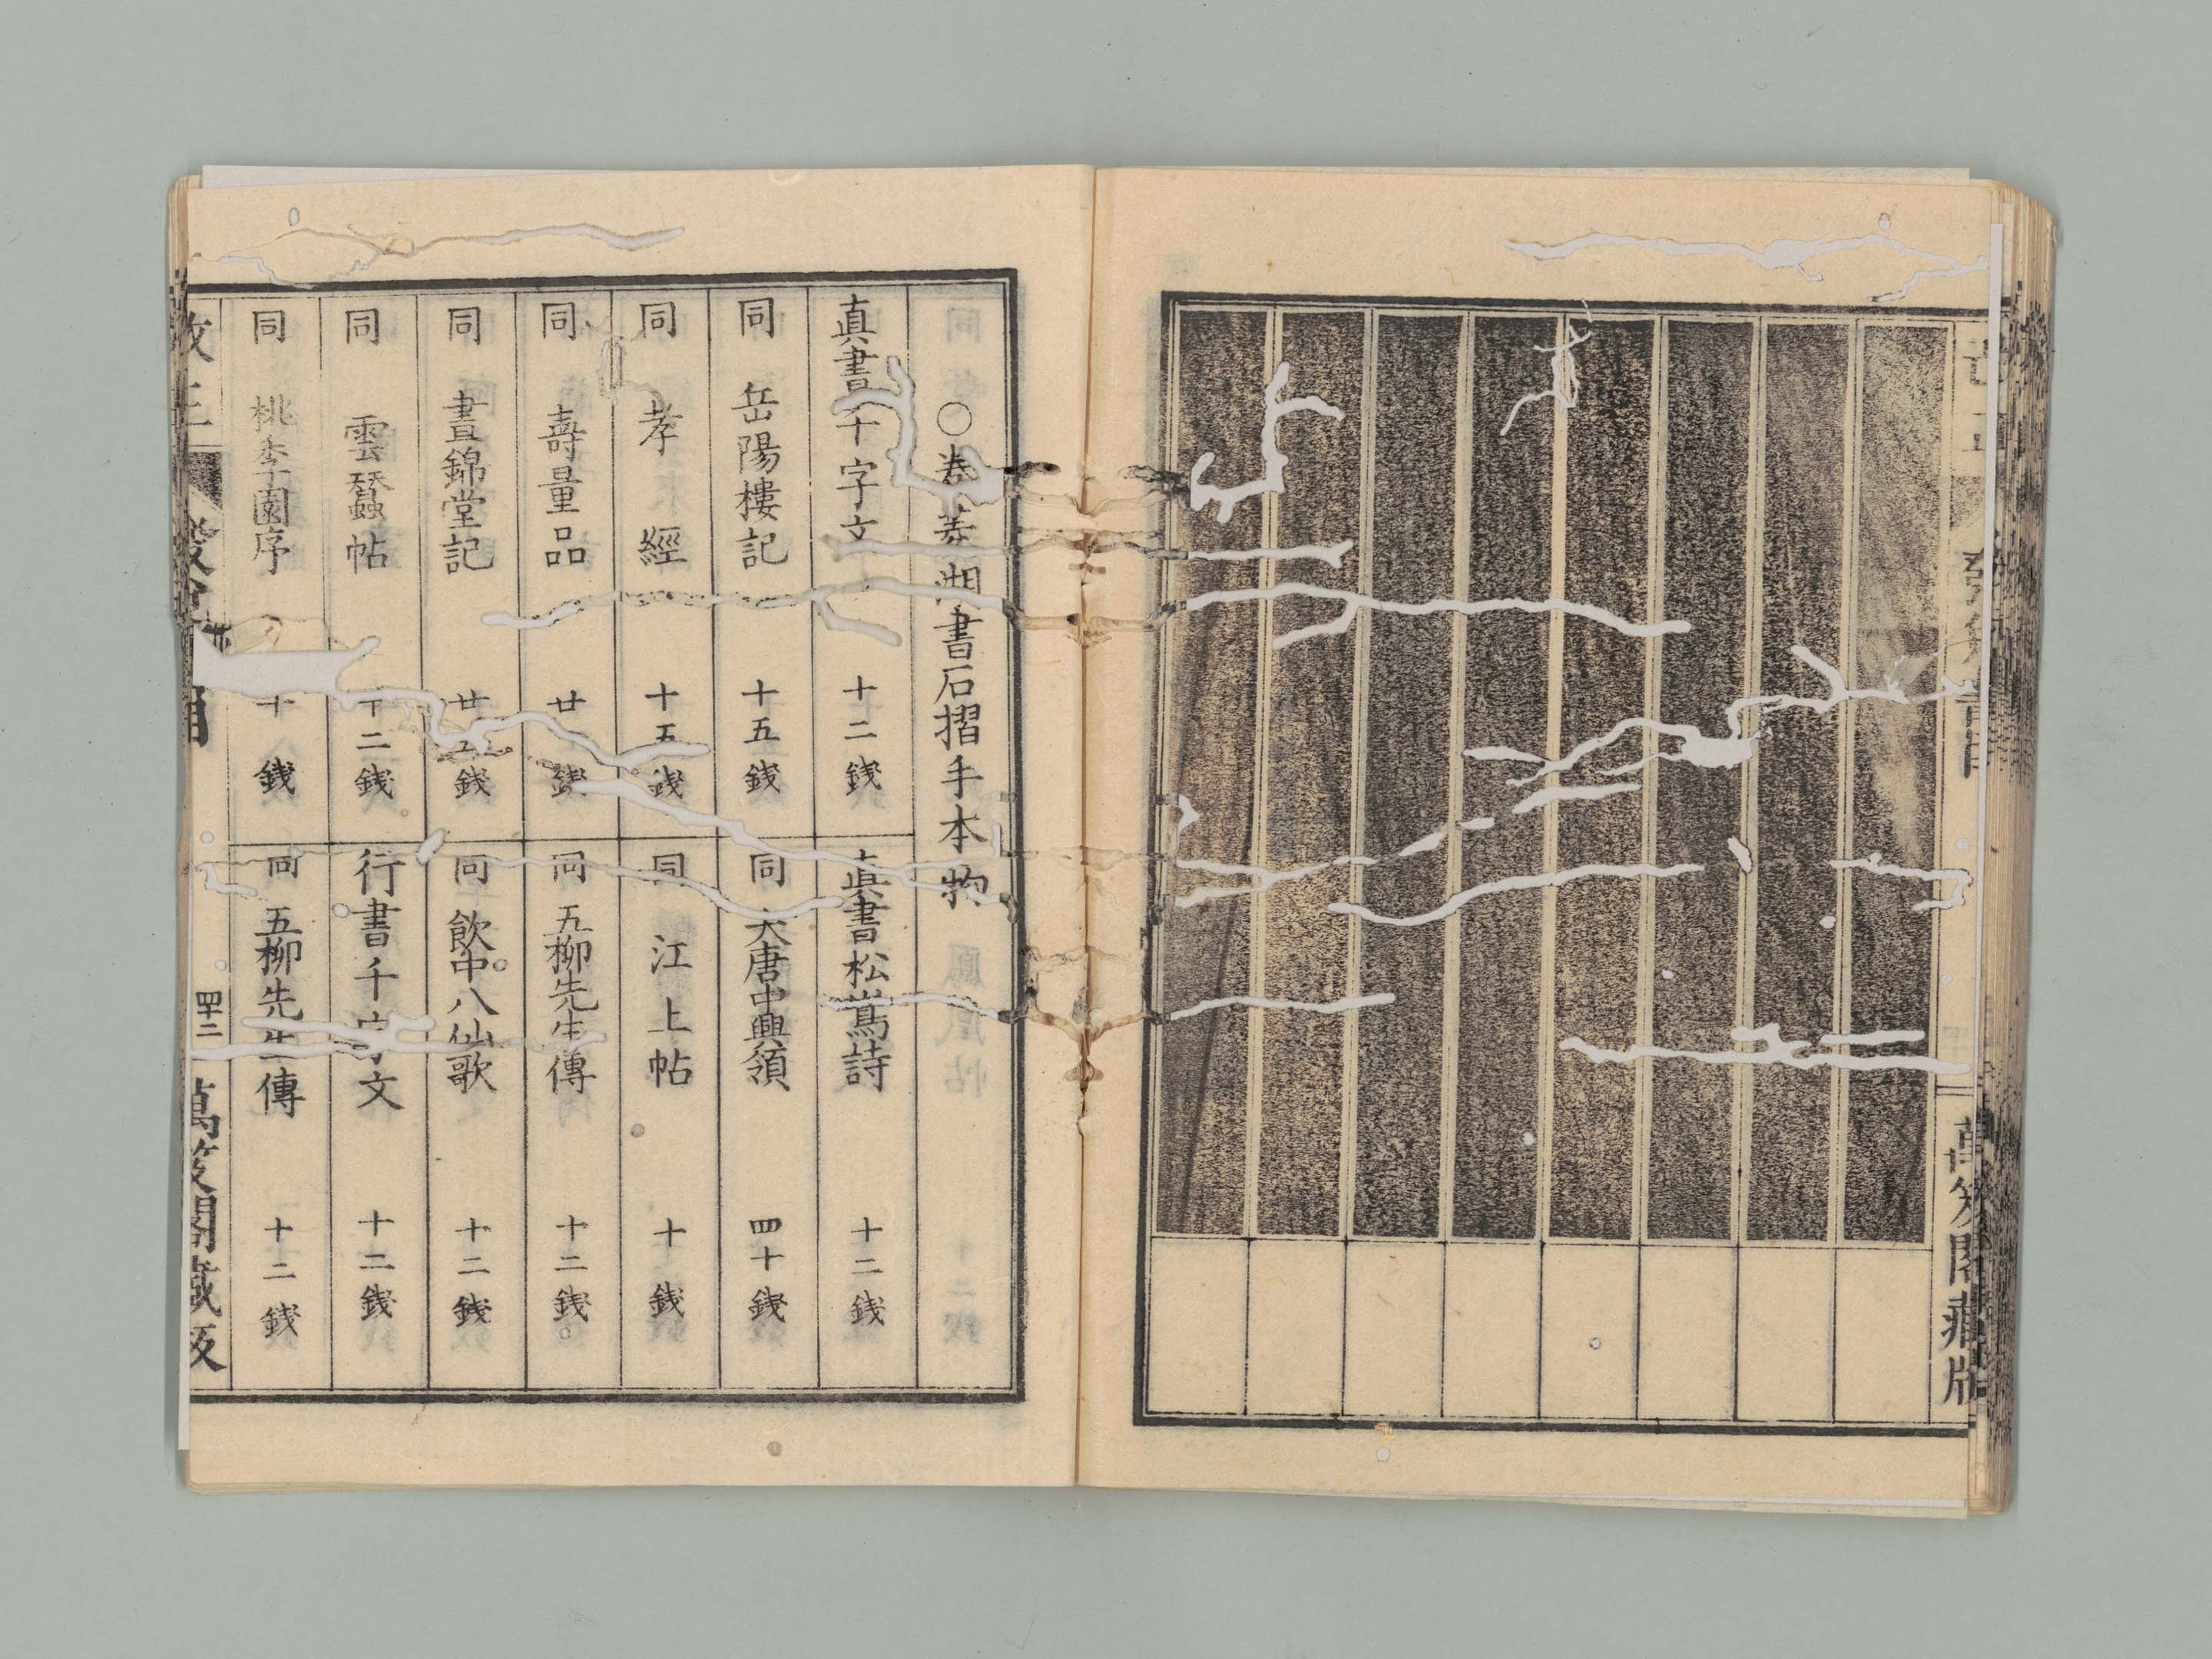 萬笈閣藏版
○巻菱湖書石摺手本物
真書千字文 十二銭
同 岳陽樓記 十五銭
同 孝經 十五銭
同 壽量品 廿銭
同 晝錦堂記 廿五銭
同 雲麾帖 十二銭
同 桃李園序 十銭
真書松蔦詩 十二銭
同 大唐中興頌 四十銭
同 江上帖 十銭
同 五柳先生傳 十二銭
同 飲中八仙歌 十二銭
行書千字文 十二銭
同 五柳先生傳 十二銭
四十二
萬笈閣藏版